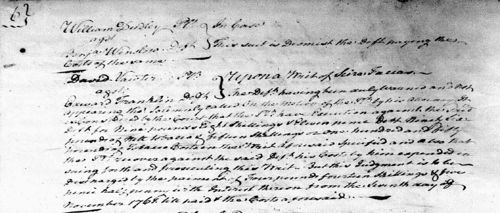 62
William Dudley Plt. In Case
agst
Benja. Winslow Deft. This suit is dismist the Deft. paying the
Costs of the same
David Plt. Upon a Writ of Scire Facias
agst
Edward Franklin Deft. The Deft. having been duly warned and not
appearing tho' solemnly called On the motion of the Plt. by his Attorney It
is considered by the Court that the Plt. have Execution against the said
Deft. for Nine pounds Eight Shillings & Eleven pence
pounds of Tobacco fifteen Shillings or one hundred and fifty
pounds of Tobacco Costs in the Writ aforesaid specified and also that
the Plt. recover against the said Deft. his Costs by him expended in
suing forth and prosecuting this Writ. But this Judgment is to be
discharged by the payment of four pounds fourteen Shillings & five
pence half penny with Interest thereon from the Seventh day of
November 1768 till paid & the Costs aforesaid